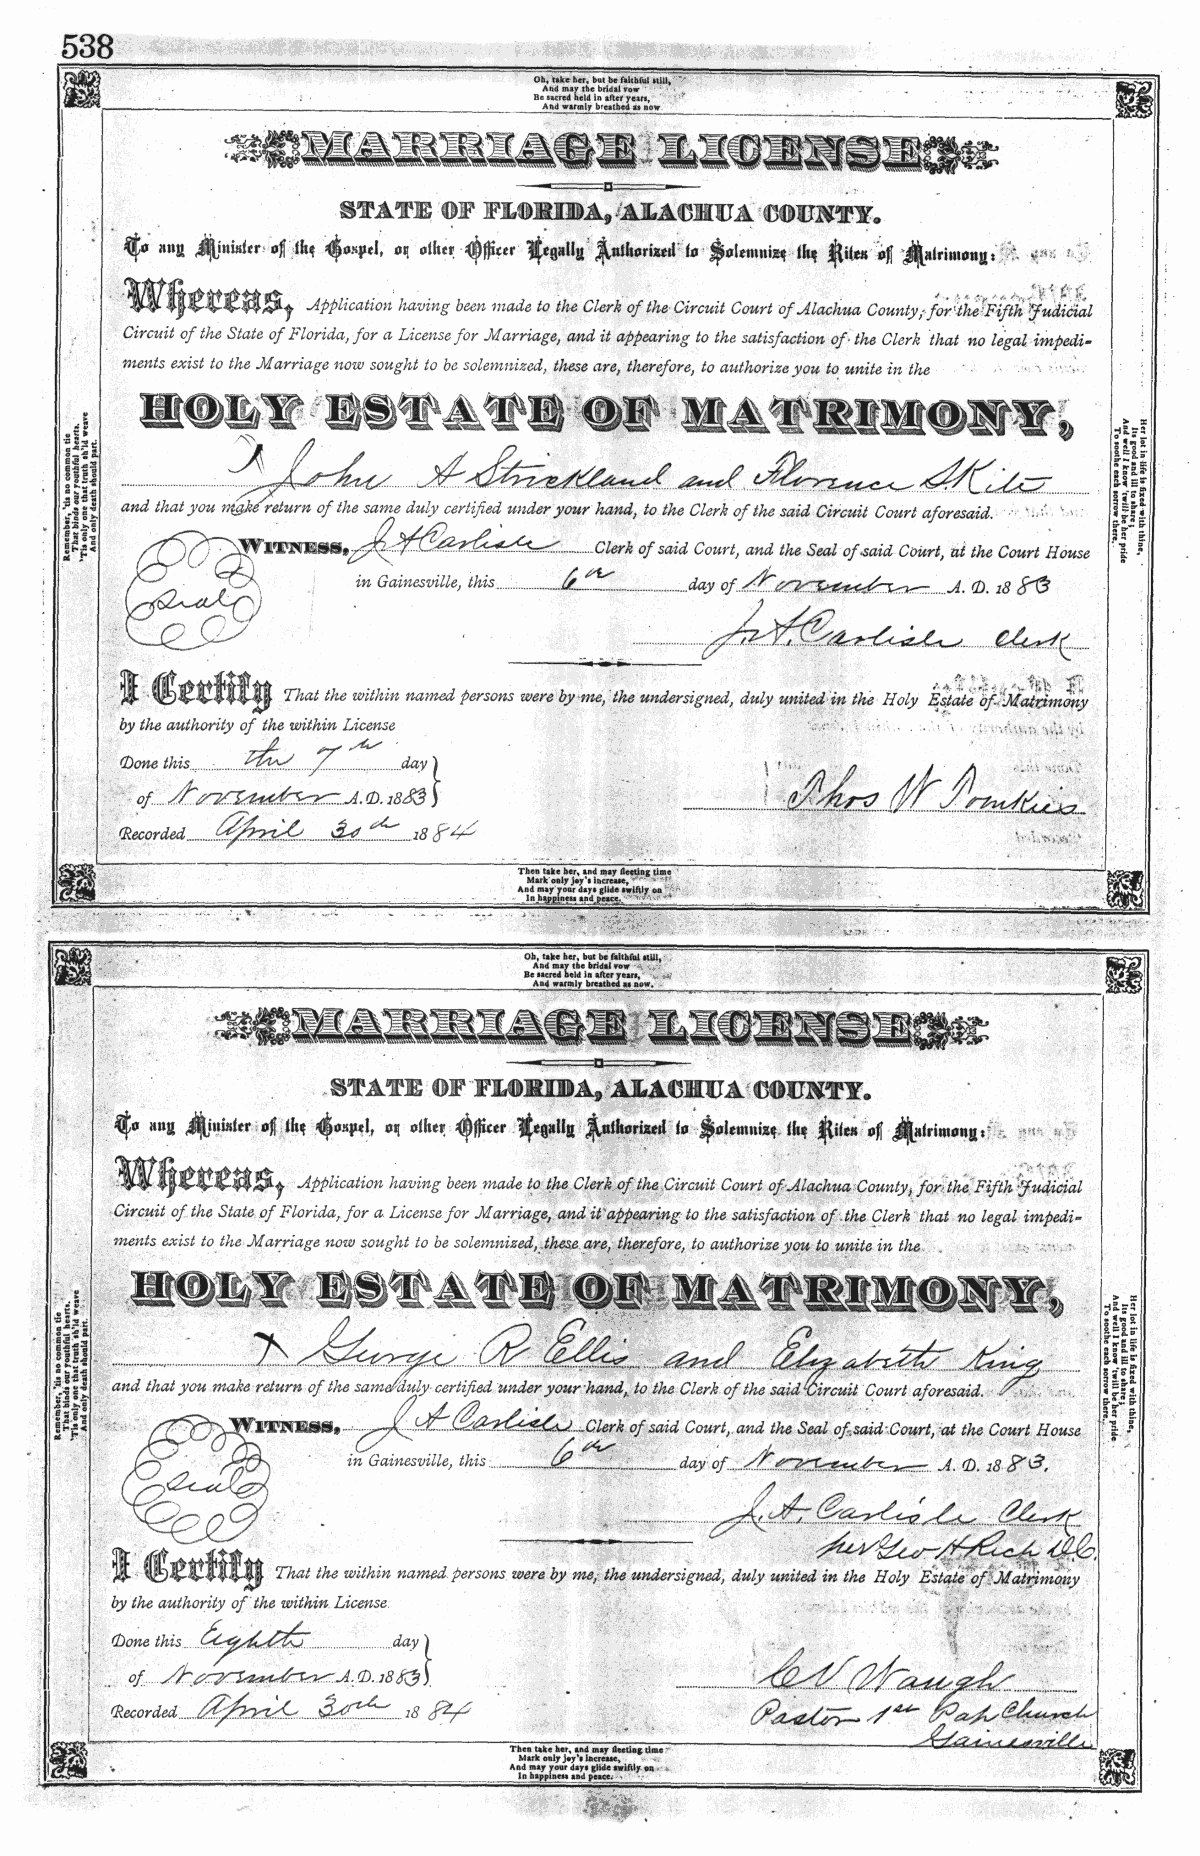 538
Oh, take her, but be faithful still,
And may the bridal vow
Be sacred held in after years,
And warmly breathed as now
MARRIAGE LICENSE
STATE OF FLORIDA, ALACHUA COUNTY.
To any Minister of the Gospel, or other Officer Legally Authorized to Solemnize the Rites of Matrimony:
Whereas, Application having been made to the Clerk of the Circuit Court of Alachua County, for the Fifth Judicial
Circuit of the State of Florida, for a License for Marriage, and it appearing to the satisfaction of the Clerk that no legal impedi-
ments exist to the Marriage now sought to be solemnized, these are, therefore, to authorize you to unite in the
HOLY ESTATE OF MATRIMONY,
John A Strickland and Florence S Kite
and that you make return of the same duly certified under your hand, to the Clerk of the said Circuit Court aforesaid.
WITNESS, J A Carlisle Clerk of said Court, and the Seal of said Court, at the Court House
in Gainesville, this 6th day of November A. D. 1883
Seal
J. A. Carlisle Clerk
I Certify That the within named persons were by me, the undersigned, duly united in the Holy Estate of Matrimony
by the authority of the within License
Done this the 7th day
of November A.D. 1883
Thos W Tomkies
Recorded April 30th 1884
Remember, 'tis no common tie
That binds our youthful hearts,
'Tis only one that truth sh'ld weave
And only death should part.
Her lot in life is fixed with thine,
Its good and ill to share;
And well I know 'twill be her pride
To soothe each sorrow there.
Then take her, and may fleeting time
Mark only joy's increase,
And may your days glide swiftly on
In happiness and peace.
Oh, take her, but be faithful still,
And may the bridal vow
Be sacred held in after years,
And warmly breathed as now.
MARRIAGE LICENSE
STATE OF FLORIDA, ALACHUA COUNTY.
To any Minister of the Gospel, or other Officer Legally Authorized to Solemnize the Rites of Matrimony:
Whereas, Application having been made to the Clerk of the Circuit Court of Alachua County, for the Fifth Judicial
Circuit of the State of Florida, for a License for Marriage, and it appearing to the satisfaction of the Clerk that no legal impedi-
ments exist to the Marriage now sought to be solemnized, these are, therefore, to authorize you to unite in the
HOLY ESTATE OF MATRIMONY,
X George R Ellis and Elizabeth King
and that you make return of the same duly certified under your hand, to the Clerk of the said Circuit Court aforesaid.
WITNESS, J A Carlisle Clerk of said Court, and the Seal of said Court, at the Court House
in Gainesville, this 6th day of November A. D. 1883.
Seal
J. A. Carlisle Clerk
per Geo H Rich D.C.
I Certify That the within named persons were by me, the undersigned, duly united in the Holy Estate of Matrimony
by the authority of the within License
Done this Eighth day
of November A.D. 1883
C V Waugh
Recorded April 30th 1884
Pastor 1st Bap Church
Gainesville
Remember, 'tis no common tie
That binds our youthful hearts,
'Tis only one that truth sh'ld weave
And only death should part.
Her lot in life is fixed with thine,
Its good and ill to share;
And well I know 'twill be her pride
To soothe each sorrow there.
Then take her, and may fleeting time
Mark only joy's increase,
And may your days glide swiftly on
In happiness and peace.